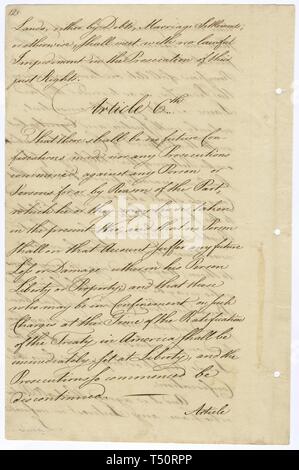 (12)
Lands, either by Debts, Marriage Settlements,
or otherwise, shall meet with no lawful
Impediment in the Prosecution of their
just Rights.
Article 6th
That there shall be no future Con-
fiscations made nor any Prosecutions
commenced against any Person or
Persons for or by Reason of the Part,
which he or they may have taken
in the present War, and that no Person
shall on that Account suffer any future
Loss or Damage either in his Person
Liberty or Property; and that those
who may be in Confinement on such
Charges at the Time of the Ratification
of the Treaty in America shall be
immediately set at Liberty, and the
Prosecutions so commenced be
discontinued.
Article
alamy
Image ID: T50RPP
www.alamy.com